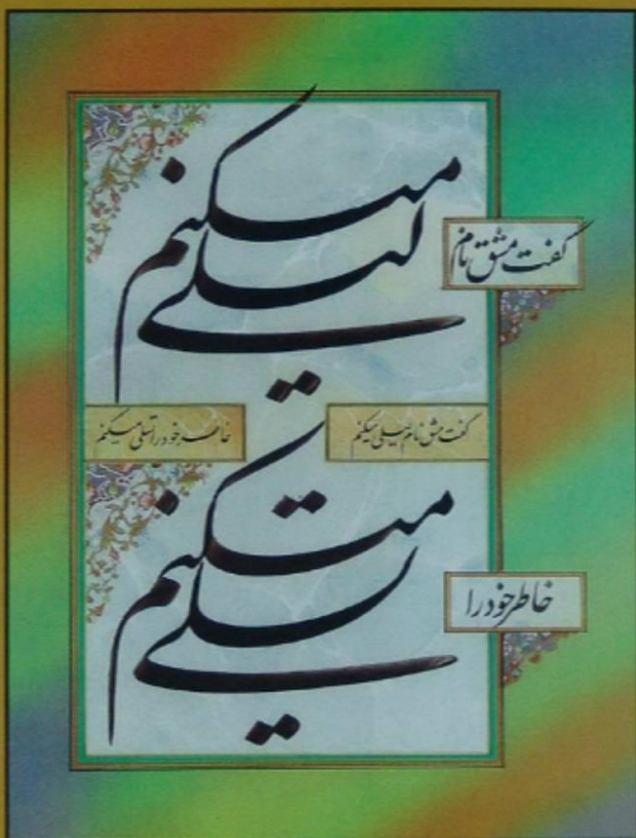 گفت مشق نام
لیلی میکنم
گفت مشق نام لیلی میکنم
خاطر خود را تسلی میکنم
خاطر خود را
تسلی میکنم